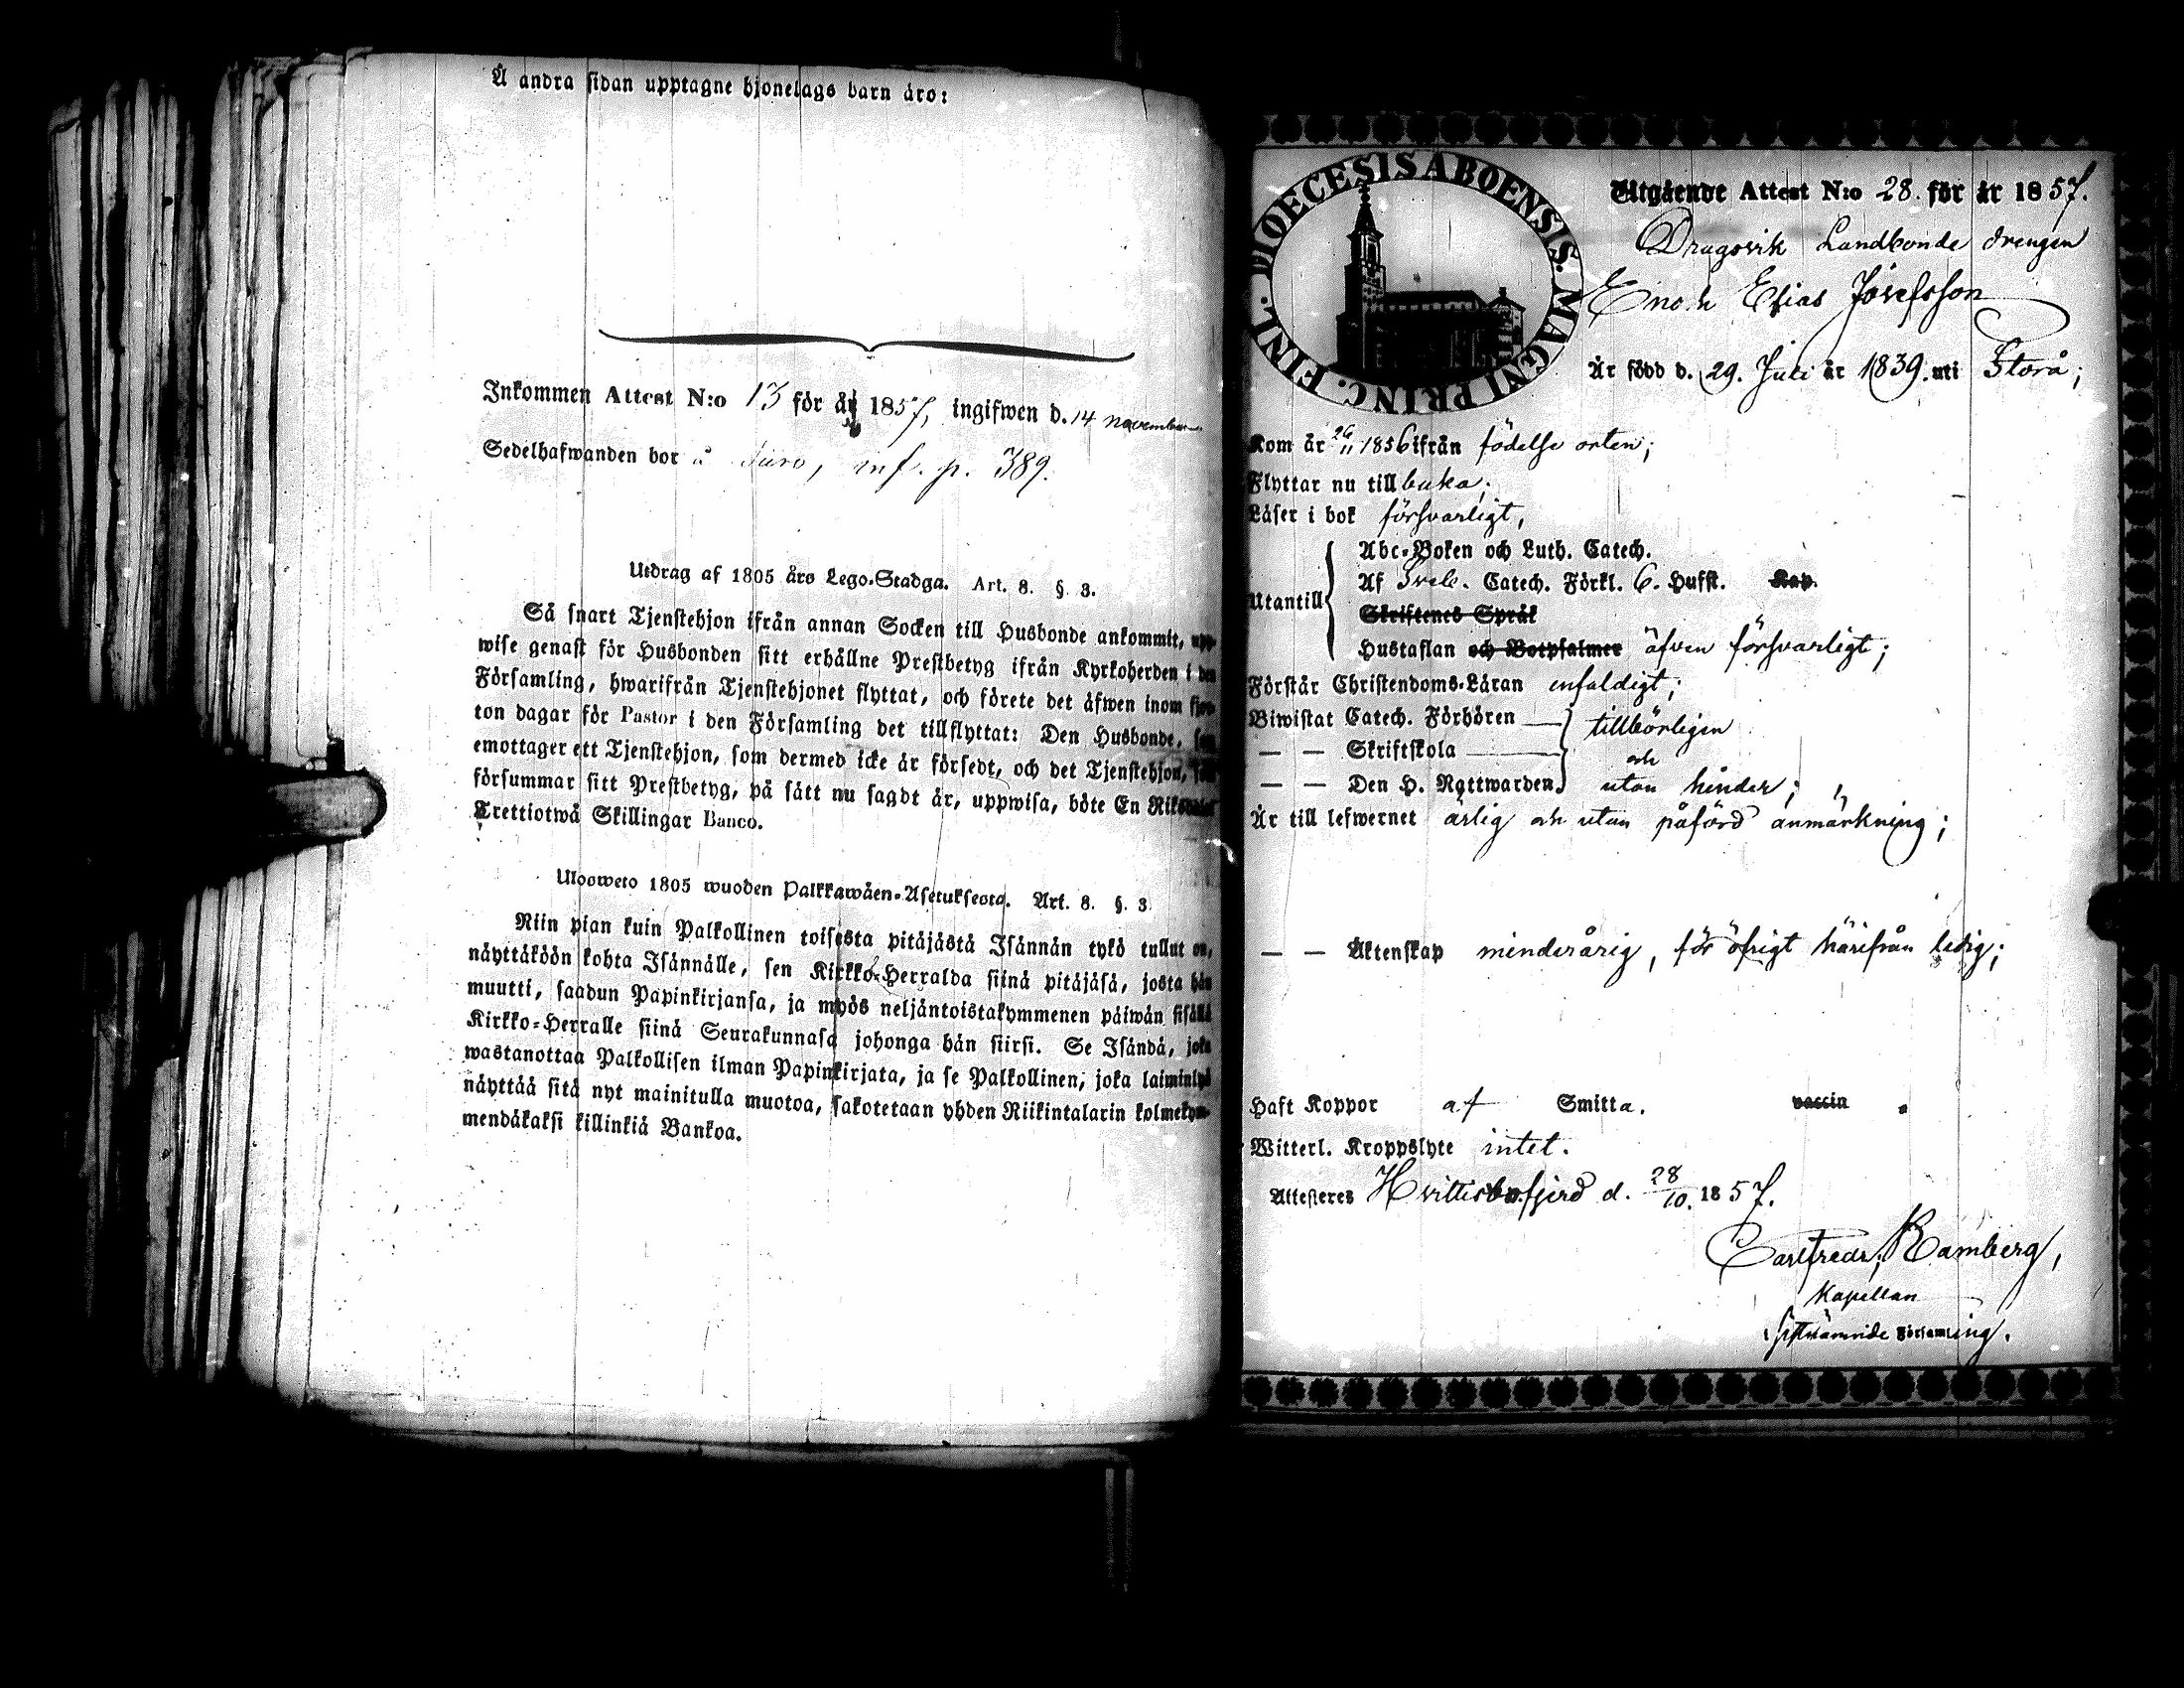 Å andra sidan upptagne hjonelags barn äro:
Inkommen Attest N:o 13 för år 1857, ingifwen d. 14 november
Sedelhafwanden bor å inf. p. 389.
Utdrag af 1805 års Lego-Stadga. Art. 8. §. 3.
Så snart Tjenstehjon ifrån annan Socken till Husbonde ankommit, upp-
wise genast för Husbonden sitt erhållne Prestbetyg ifrån Kyrkoherden i den
Församling, hwarifrån Tjenstehjonet flyttat, och förete det äfwen inom fjor-
ton dagar för Pastor i den Församling det tillflyttat: Den Husbonde, som
emottager ett Tjenstehjon, som dermed icke är försedt, och det Tjenstehjon, som
försummar sitt Prestbetyg, på sätt nu sagdt är, uppwisa, böte En Riksdaler
Trettiotwå Skillingar Banco.
Ulosweto 1805 wuoden Palkkawäen-Asetuksesta. Art. 8. §. 3
Niin pian kuin Palkollinen toisesta pitäjästä Isännän tykö tullut on,
näyttäköön kohta Isännälle, sen Kirkko-Herralda siinä pitäjäsä, josta hän
muutti, saadun Papinkirjansa, ja myös neljäntoistakymmenen päiwän sisällä
Kirkko-Herralle siinä Seurakunnasa johonga hän siirsi. Se Isändä, joka
wastanottaa Palkollisen ilman Papinkirjata, ja se Palkollinen, joka laiminlyö
näyttää sitä nyt mainitulla muotoa, sakotetaan yhden Riikintalarin kolmekym-
mendäkaksi killinkiä Bankoa.
DIOECESIS ABOENSIS. MAGNI PRINC. FINL.
Utgående Attest N:o 28. för år 1857.
Dragsvik Landbonde drengen
Enoch Elias Josefsson
Är född d. 29. Juli år 1839. uti Storå;
Kom år 26/11 1856 ifrån födelse orten;
Flyttar nu tillbaka;
Läser i bok försvarligt,
Abc-Boken och Luth. Catech.
Utantill Af Sveb. Catech. Förkl. 6. Hufst. Kap.
Skriftenes Språk
Hustaflan och Botpsalmer äfven försvarligt;
Förstår Christendoms-Läran enfaldigt;
Biwistat Catech. Förhören tillbörligen
— — Skriftskola och
— — Den H. Nattwarden utan hinder;
Är till lefwernet ärlig och utan påförd anmärkning;
— — Äktenskap minderårig, för öfrigt härifrån ledig;
Haft Koppor af Smitta. vaccin
Witterl. Kroppslyte intet.
Attesteres Hvittisbofjerd d. 28/10. 1857.
Carl Fredr. Ramberg,
Kapellan
i förnämnde Församling.